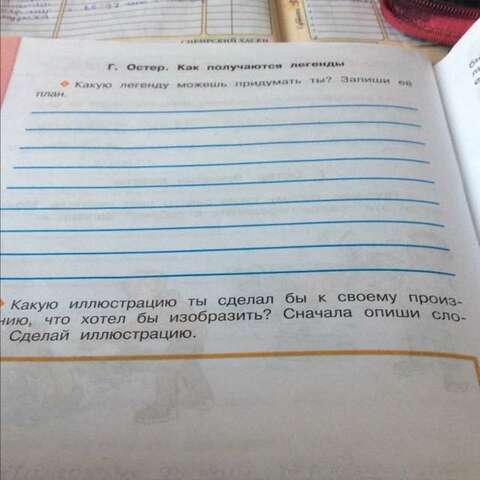 Г. Остер. Как получаются легенды
Какую легенду можешь придумать ты? Запиши её
план.
Какую иллюстрацию ты сделал бы к своему произ-
нию, что хотел бы изобразить? Сначала опиши сло-
Сделай иллюстрацию.